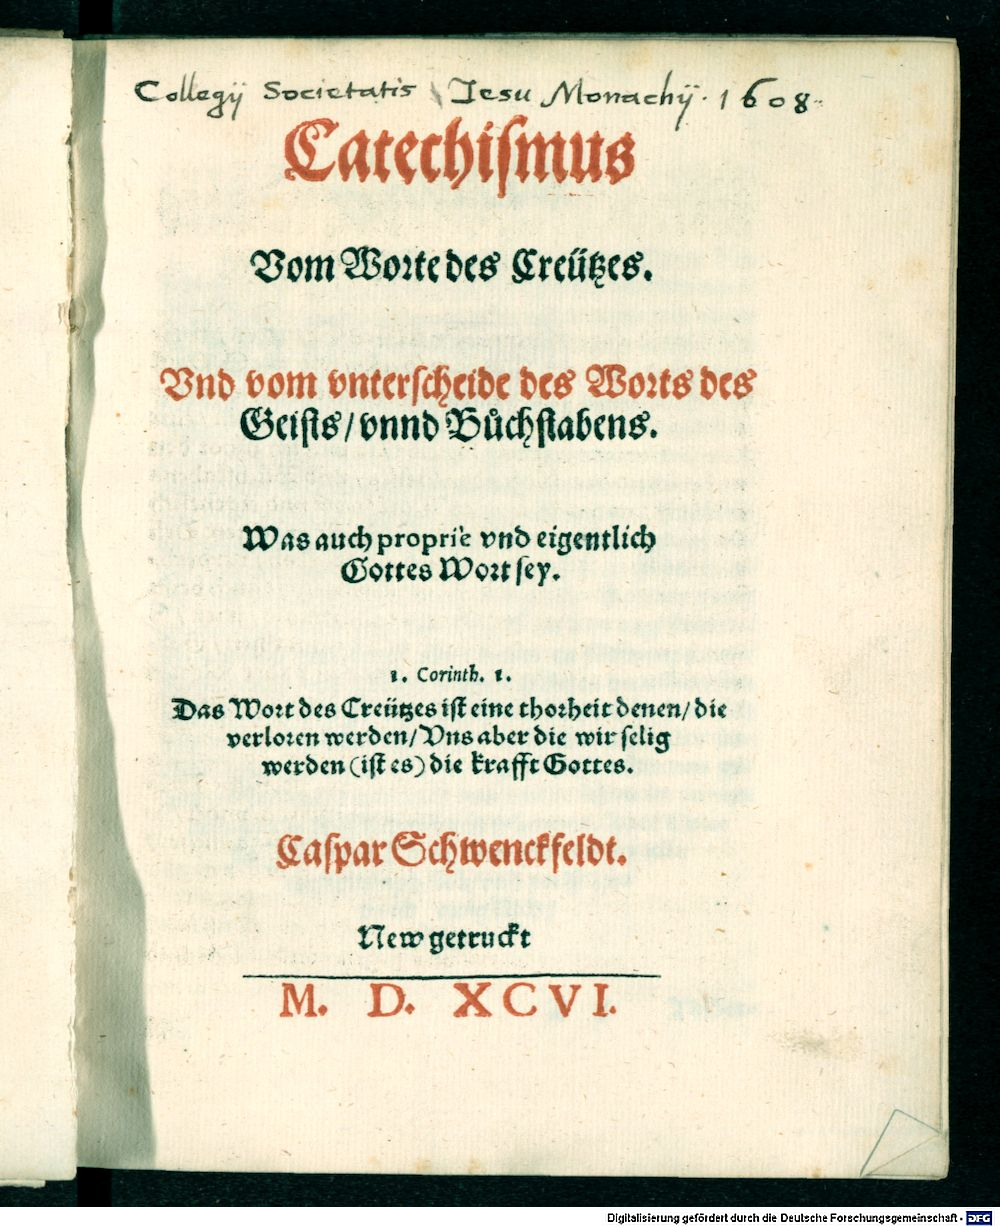 Collegij Societatis Iesu Monachij. 1608.
Catechiſmus
Vom Worte des Creützes.
Vnd vom vnterſcheide des Worts des
Geiſts/ vnnd Bůchſtabens.
Was auch propriè vnd eigentlich
Gottes Wort ſey.
1. Corinth. 1.
Das Wort des Creützes iſt eine thorheit denen/ die
verloren werden/ Vns aber die wir ſelig
werden (iſt es) die krafft Gottes.
Caſpar Schwenckfeldt.
New getruckt
M. D. XCVI.
Digitalisierung gefördert durch die Deutsche Forschungsgemeinschaft - DFG